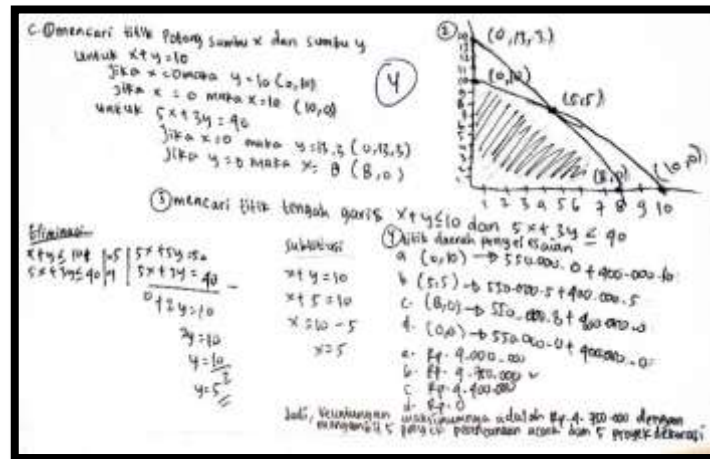 C. ① mencari titik Potong sumbu x dan sumbu y
untuk x+y=10
Jika x=0 maka y=10 (0,10)
Jika x=0 maka x=10 (10,0)
untuk 5x+3y=40
Jika x=0 maka y=13,3 (0,13,3)
Jika y=0 maka x=8 (8,0)
4
②
(0,13,3)
(0,10)
(5,5)
(8,0)
(10,0)
1 2 3 4 5 6 7 8 9 10
③ mencari titik tengah garis x+y≤10 dan 5x+3y≤40
Eliminasi
x+y≤10 |.5| 5x+5y=50
5x+3y≤40 |.1| 5x+3y=40 -
0+2y=10
2y=10
y=10
2
y=5
Subtitusi
x+y=10
x+5=10
x=10-5
x=5
④ titik daerah penyelesaian
a (0,10) → 550.000.0+400.000.10
b (5,5) → 550.000.5+400.000.5
c. (8,0) → 550.000.8+400.000.0
d. (0,0) → 550.000.0+400.000.0
a. Rp. 4.000.000
b. Rp. 4.750.000 ✓
c. Rp 4.400.000
d. Rp. 0
Jadi, keuntungan maksimumnya adalah Rp.4.750.000 dengan
mengambil 5 proyek perencanaan acara dan 5 proyek dekorasi